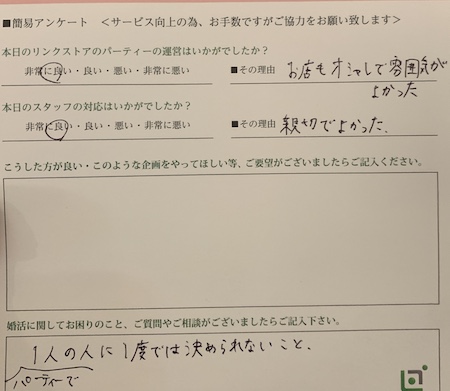 ■簡易アンケート <サービス向上の為、お手数ですがご協力をお願い致します>
本日のリンクストアのパーティーの運営はいかがでしたか?
非常に良い・良い・悪い・非常に悪い ■その理由 お店もオシャレで雰囲気が
よかった
本日のスタッフの対応はいかがでしたか?
非常に良い・良い・悪い・非常に悪い ■その理由 親切でよかった.
こうした方が良い・このような企画をやってほしい等、ご要望がございましたらご記入ください。
婚活に関してお困りのこと、ご質問やご相談がございましたらご記入下さい。
1人の人に1度では決められないこと、
パーティーで